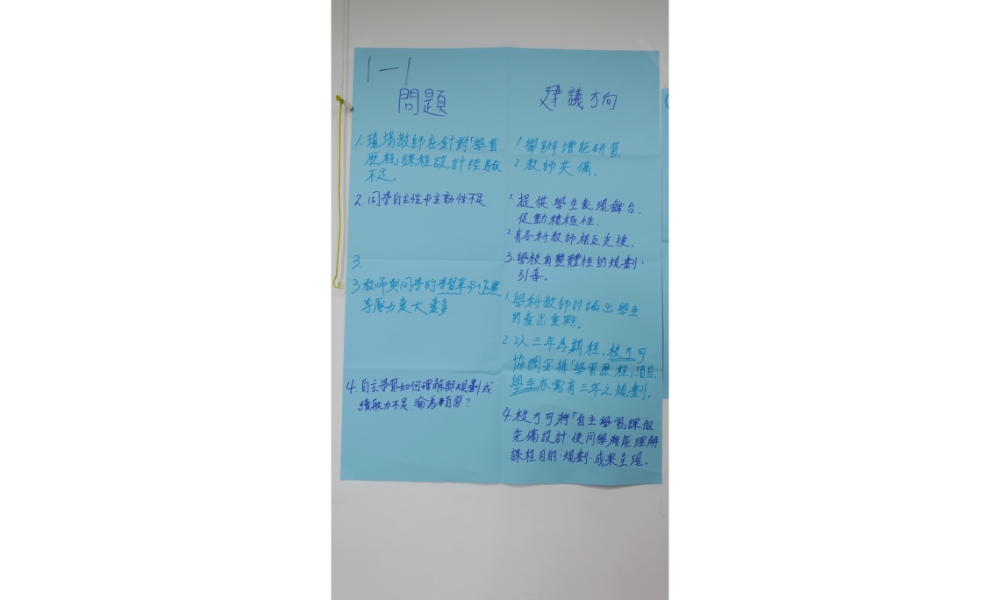 1-1
問題
1. 現場教師在針對「學習
歷程」課程設計經驗
不足。
2. 同學自主性与主動性不足
3.
3 教師與同學的學習單
等壓力更大更多
4. 自主學習如何理解與規劃或
續航力不足 淪為自習?
建議方向
1. 學辦增能研習
2. 教師共備.
1. 提供學生表現舞台.
促動積極性.
2. 有各科教師相互支援.
3. 學校有整體性的規劃.
引導.
1. 學科教師討論出學生
的產出重點.
2. 以三年為期程, 校方可
協調安排「學習歷程」項目,
學生亦需有三年之規劃.
4. 校方可將「自主學習課做
先備設計·使同學們能理解
課程目的·規劃·成果呈現.